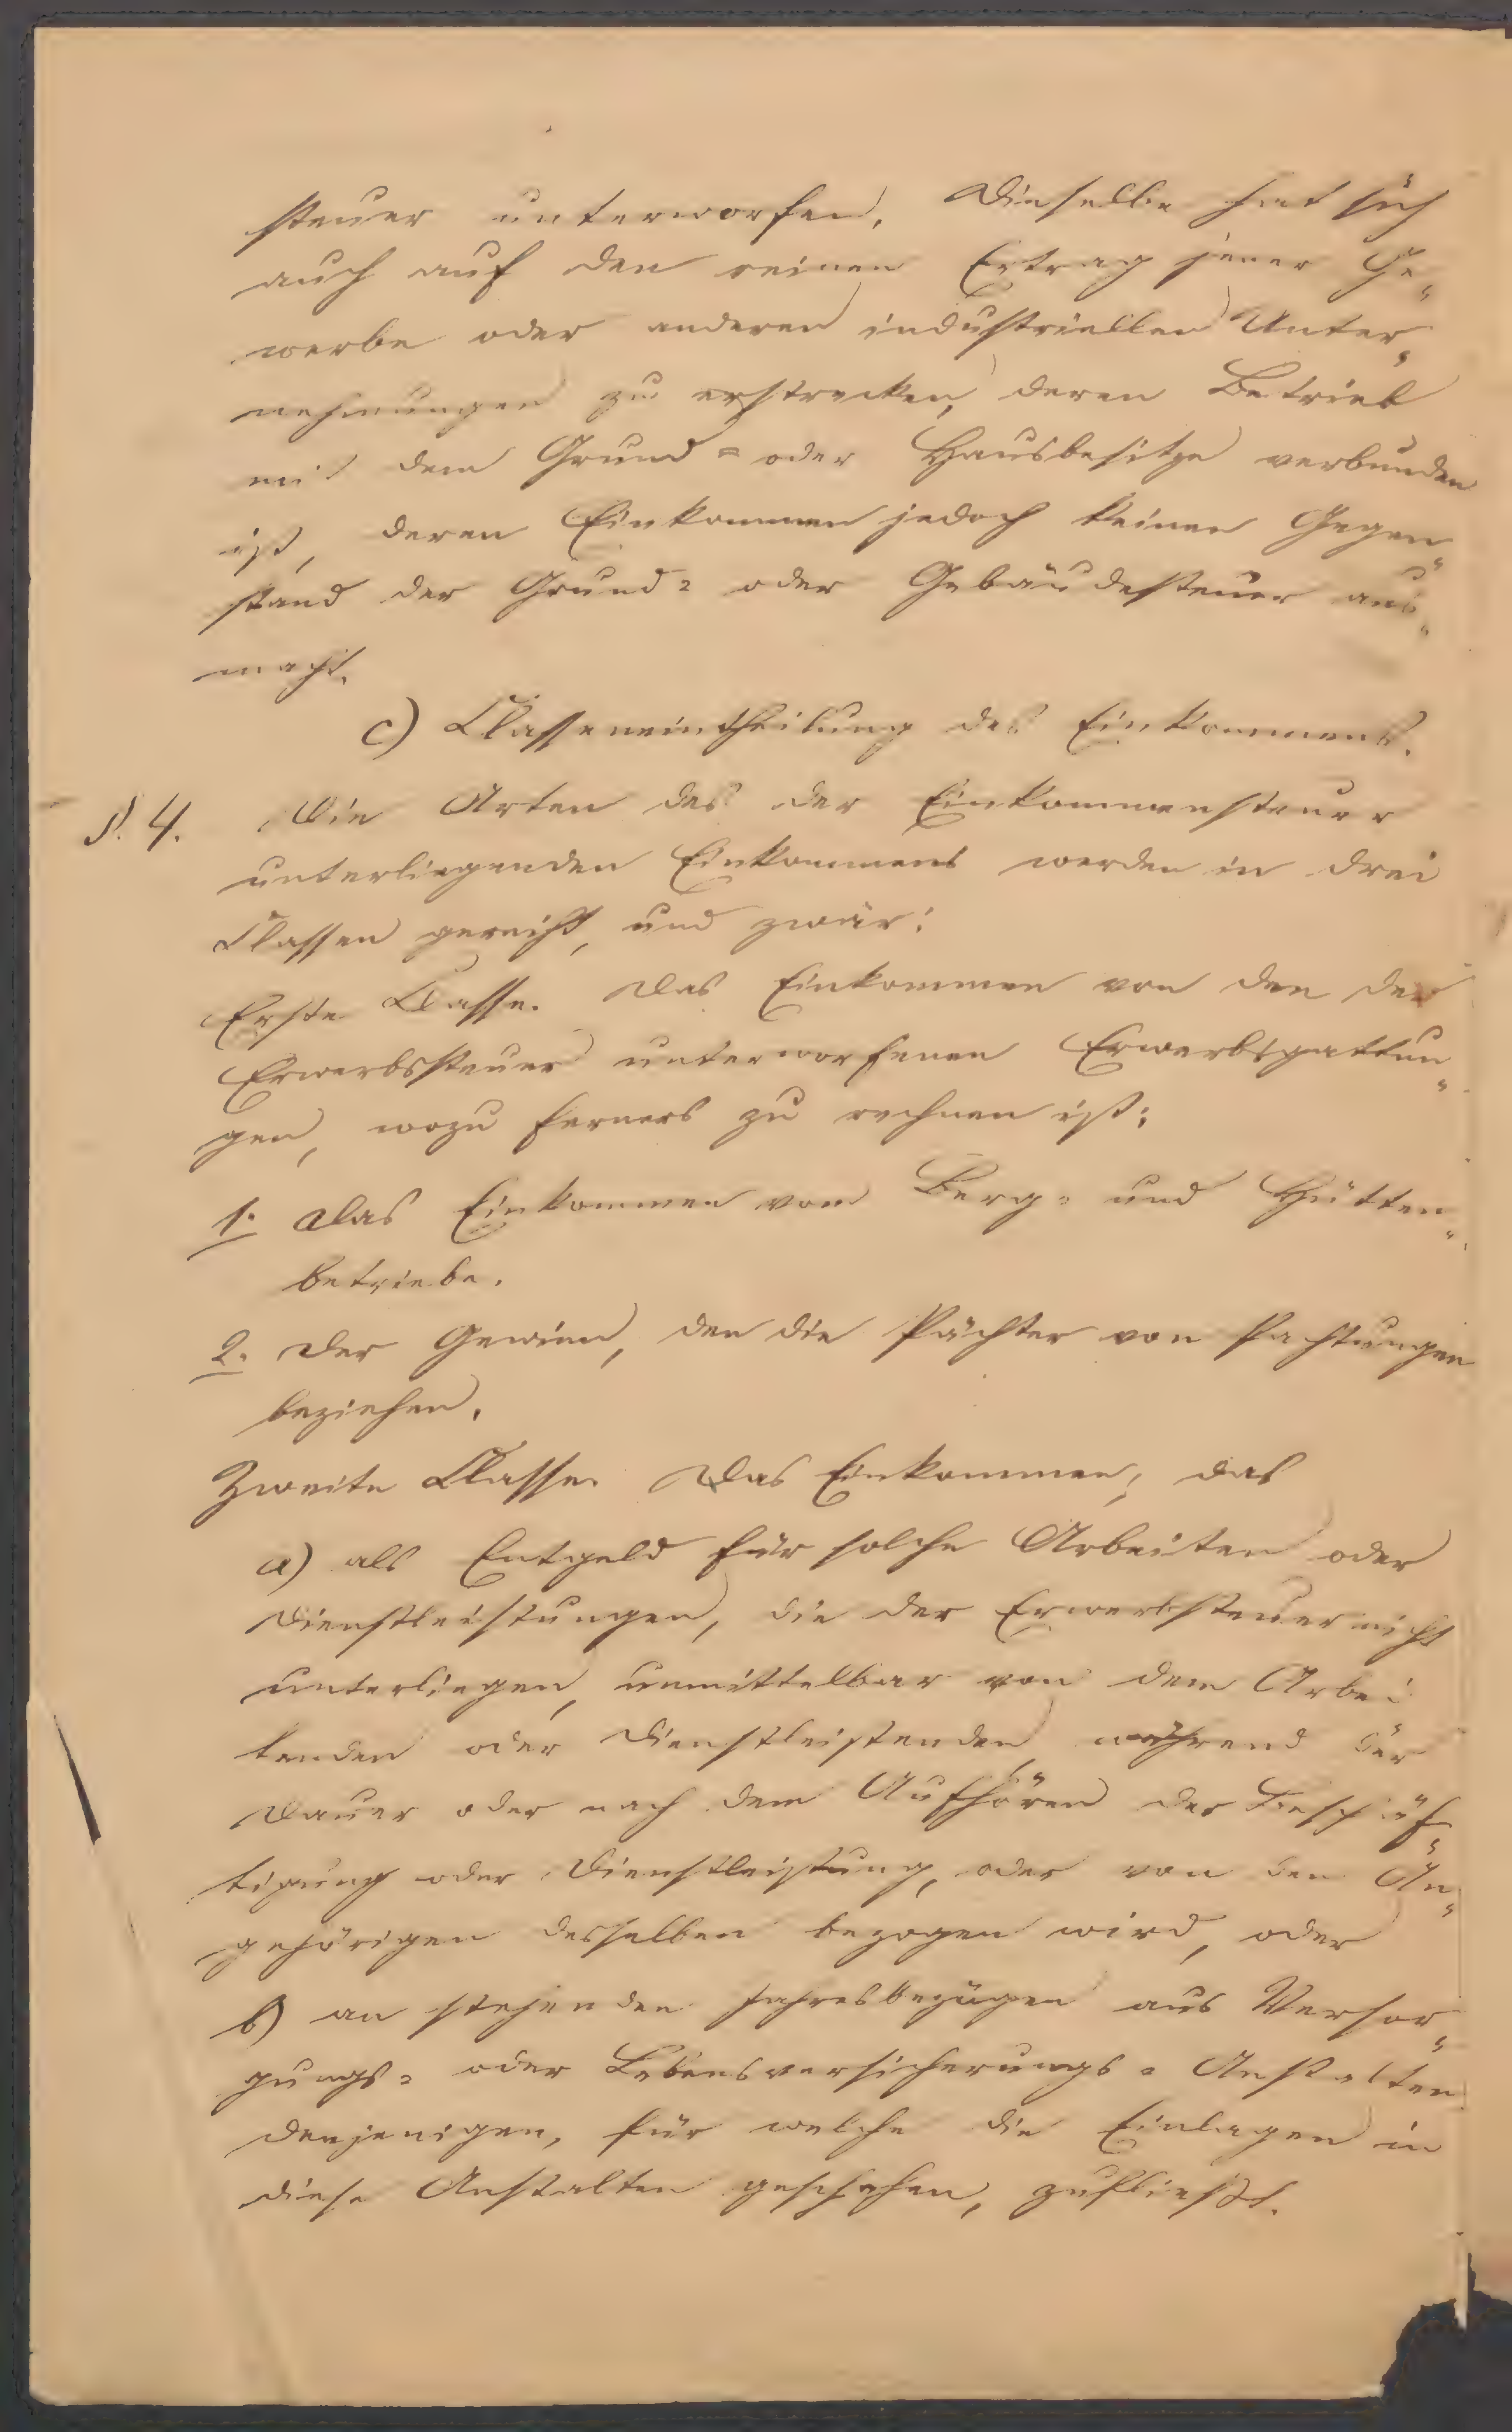 steuer unterworfen. Dieselbe hat sich
auch auf den reinen Ertrag jener Ge„
werbe oder anderen industriellen Unter„
nehmungen zu erstrecken, deren Betrieb
mit dem Grund= oder Hausbesitze verbunden
ist, deren Einkommen jedoch keinen Gegen„
stand der Grund= oder Gebäudesteuer aus„
macht.
c) Classeneintheilung des Einkommens.
§. 4. Die Arten des der Einkommensteuer
unterliegenden Einkommens werden in drei
Classen gereiht, und zwar:
Erste Classe. Das Einkommen von den der
Erwerbssteuer unterworfenen Erwerbsgattun„
gen, wozu ferners zu rechnen ist:
1. Das Einkommen vom Berg= und Hütten„
betriebe.
2. Der Gewinn, den die Pächter von Pachtungen
beziehen.
Zweite Classe. Das Einkommen, das
a) als Entgeld für solche Arbeiten oder
Dienstleistungen, die der Erwerbsteuer nicht
unterliegen, unmittelbar von dem Arbei
tenden oder Dienstleistenden während der
Dauer oder nach dem Aufhören der Beschäf„
tigung oder Dienstleistung, oder von den An„
gehörigen desselben bezogen wird, oder
b) an stehenden Jahresbezügen aus Versor„
gungs= oder Lebensversicherungs= Anstalten
denjenigen, für welche die Einlagen in
diese Anstalten geschehen, zufließt.